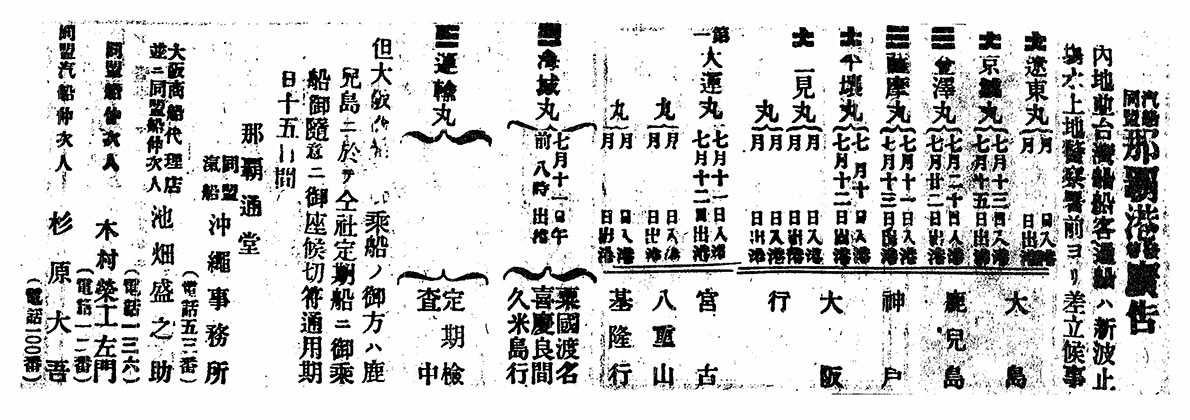 汽船同盟那覇港出帆廣告
內地並台灣線船客通船ハ新波止
場水上警察署前ヨリ差立候事
大遼東丸 月 日入港 月 日出港
大京城丸 七月十三日入港 七月十五日出港
三金澤丸 七月二十日入港 七月廿二日出港
三薩摩丸 七月十一日入港 七月十三日出港
大平壤丸 七月十日入港 七月十二日出港
大二見丸 月 日入港 月 日出港
丸 月 日入港 月 日出港
大島 鹿兒島 神戶 大阪行
第一大運丸 七月十一日入港 七月十二日出港
丸 月 日入港 月 日出港
丸 月 日入港 月 日出港
宮古 八重山 基隆行
海城丸 七月十一日午前八時出港 粟國渡名喜慶良間久米島行
三運輸丸 定期檢査中
但大阪 乘船ノ御方ハ鹿
兒島ニ於テ仝社定期船ニ御乘
船御隨意ニ御座候切符通用期
日十五日間
那覇通堂
同盟汽船 沖繩事務所
(電話五三番)
大阪商船代理店並ニ同盟船仲次人 池畑盛之助
(電話一三六)
同盟船仲次人 木村榮工左門
(電話一一二番)
同盟汽船仲次人 杉原大吾
(電話一〇〇番)